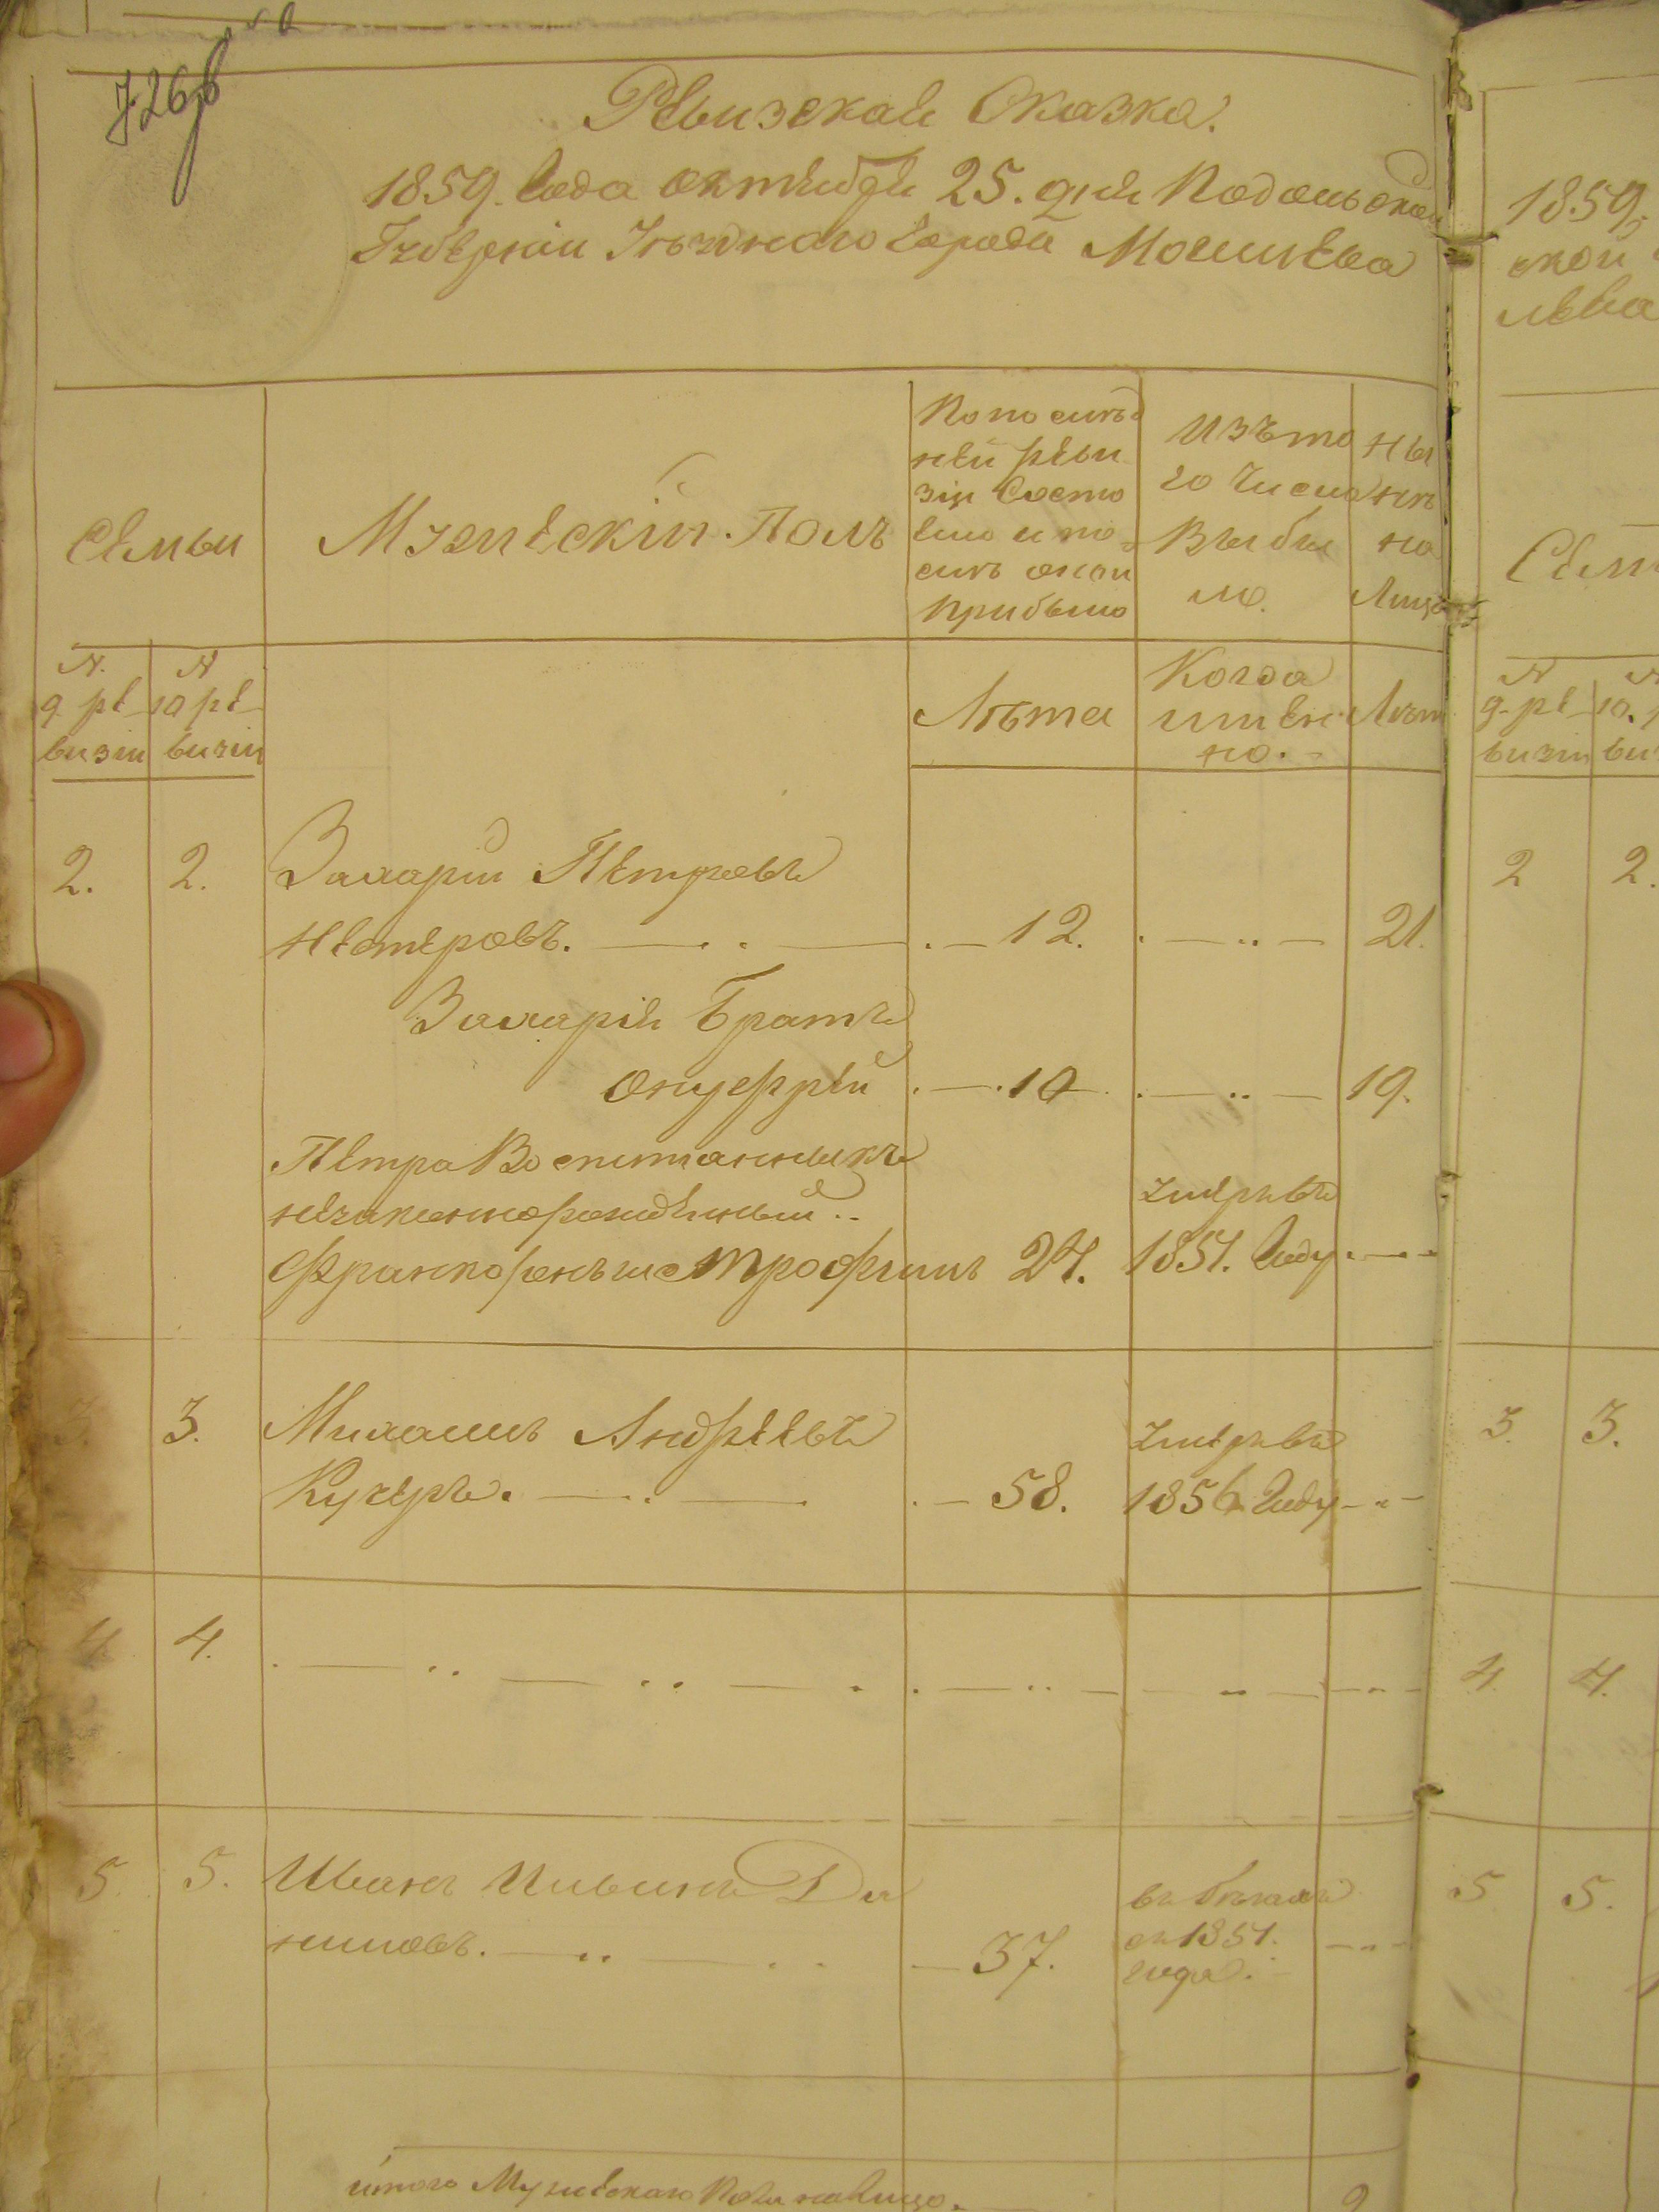 726
Ревизская Сказка.
1859. Года октября 25. дня Подольской
Губерніи Уѣзднаго города Могилева
Семьи
Мужескій Полъ
По послѣд
ней реви
зіи Состо
яло и по
слѣ оной
прибыло
Изъ то
го Числа
Выбы
ло.
Ны
нѣ
на
Лицо
N.
9 ре
визіи
N
10 ре
визіи
Лѣта
Когда
имен
но.
Лѣта
2.
2.
Захарій Петровъ
Нестеровъ.
12.
21.
Захарія Братъ
Онуфрій
10
19.
Петра Воспитанникъ
незаконнорожденный
Трофимъ
24.
Умеръ въ
1851. Году
3.
3.
Михаилъ Андреевъ
Кучеръ.
58.
Умеръ въ
1856 Году
4.
4.
5.
5.
Иванъ
37.
въ бѣгахъ
съ 1851.
года.
итого Мужескаго Пола на лицо.
2
1859.
ской
лева
Сем
N
9. ре
визіи
N
10. р
ви
2
2.
3.
3.
4.
4.
5
5.